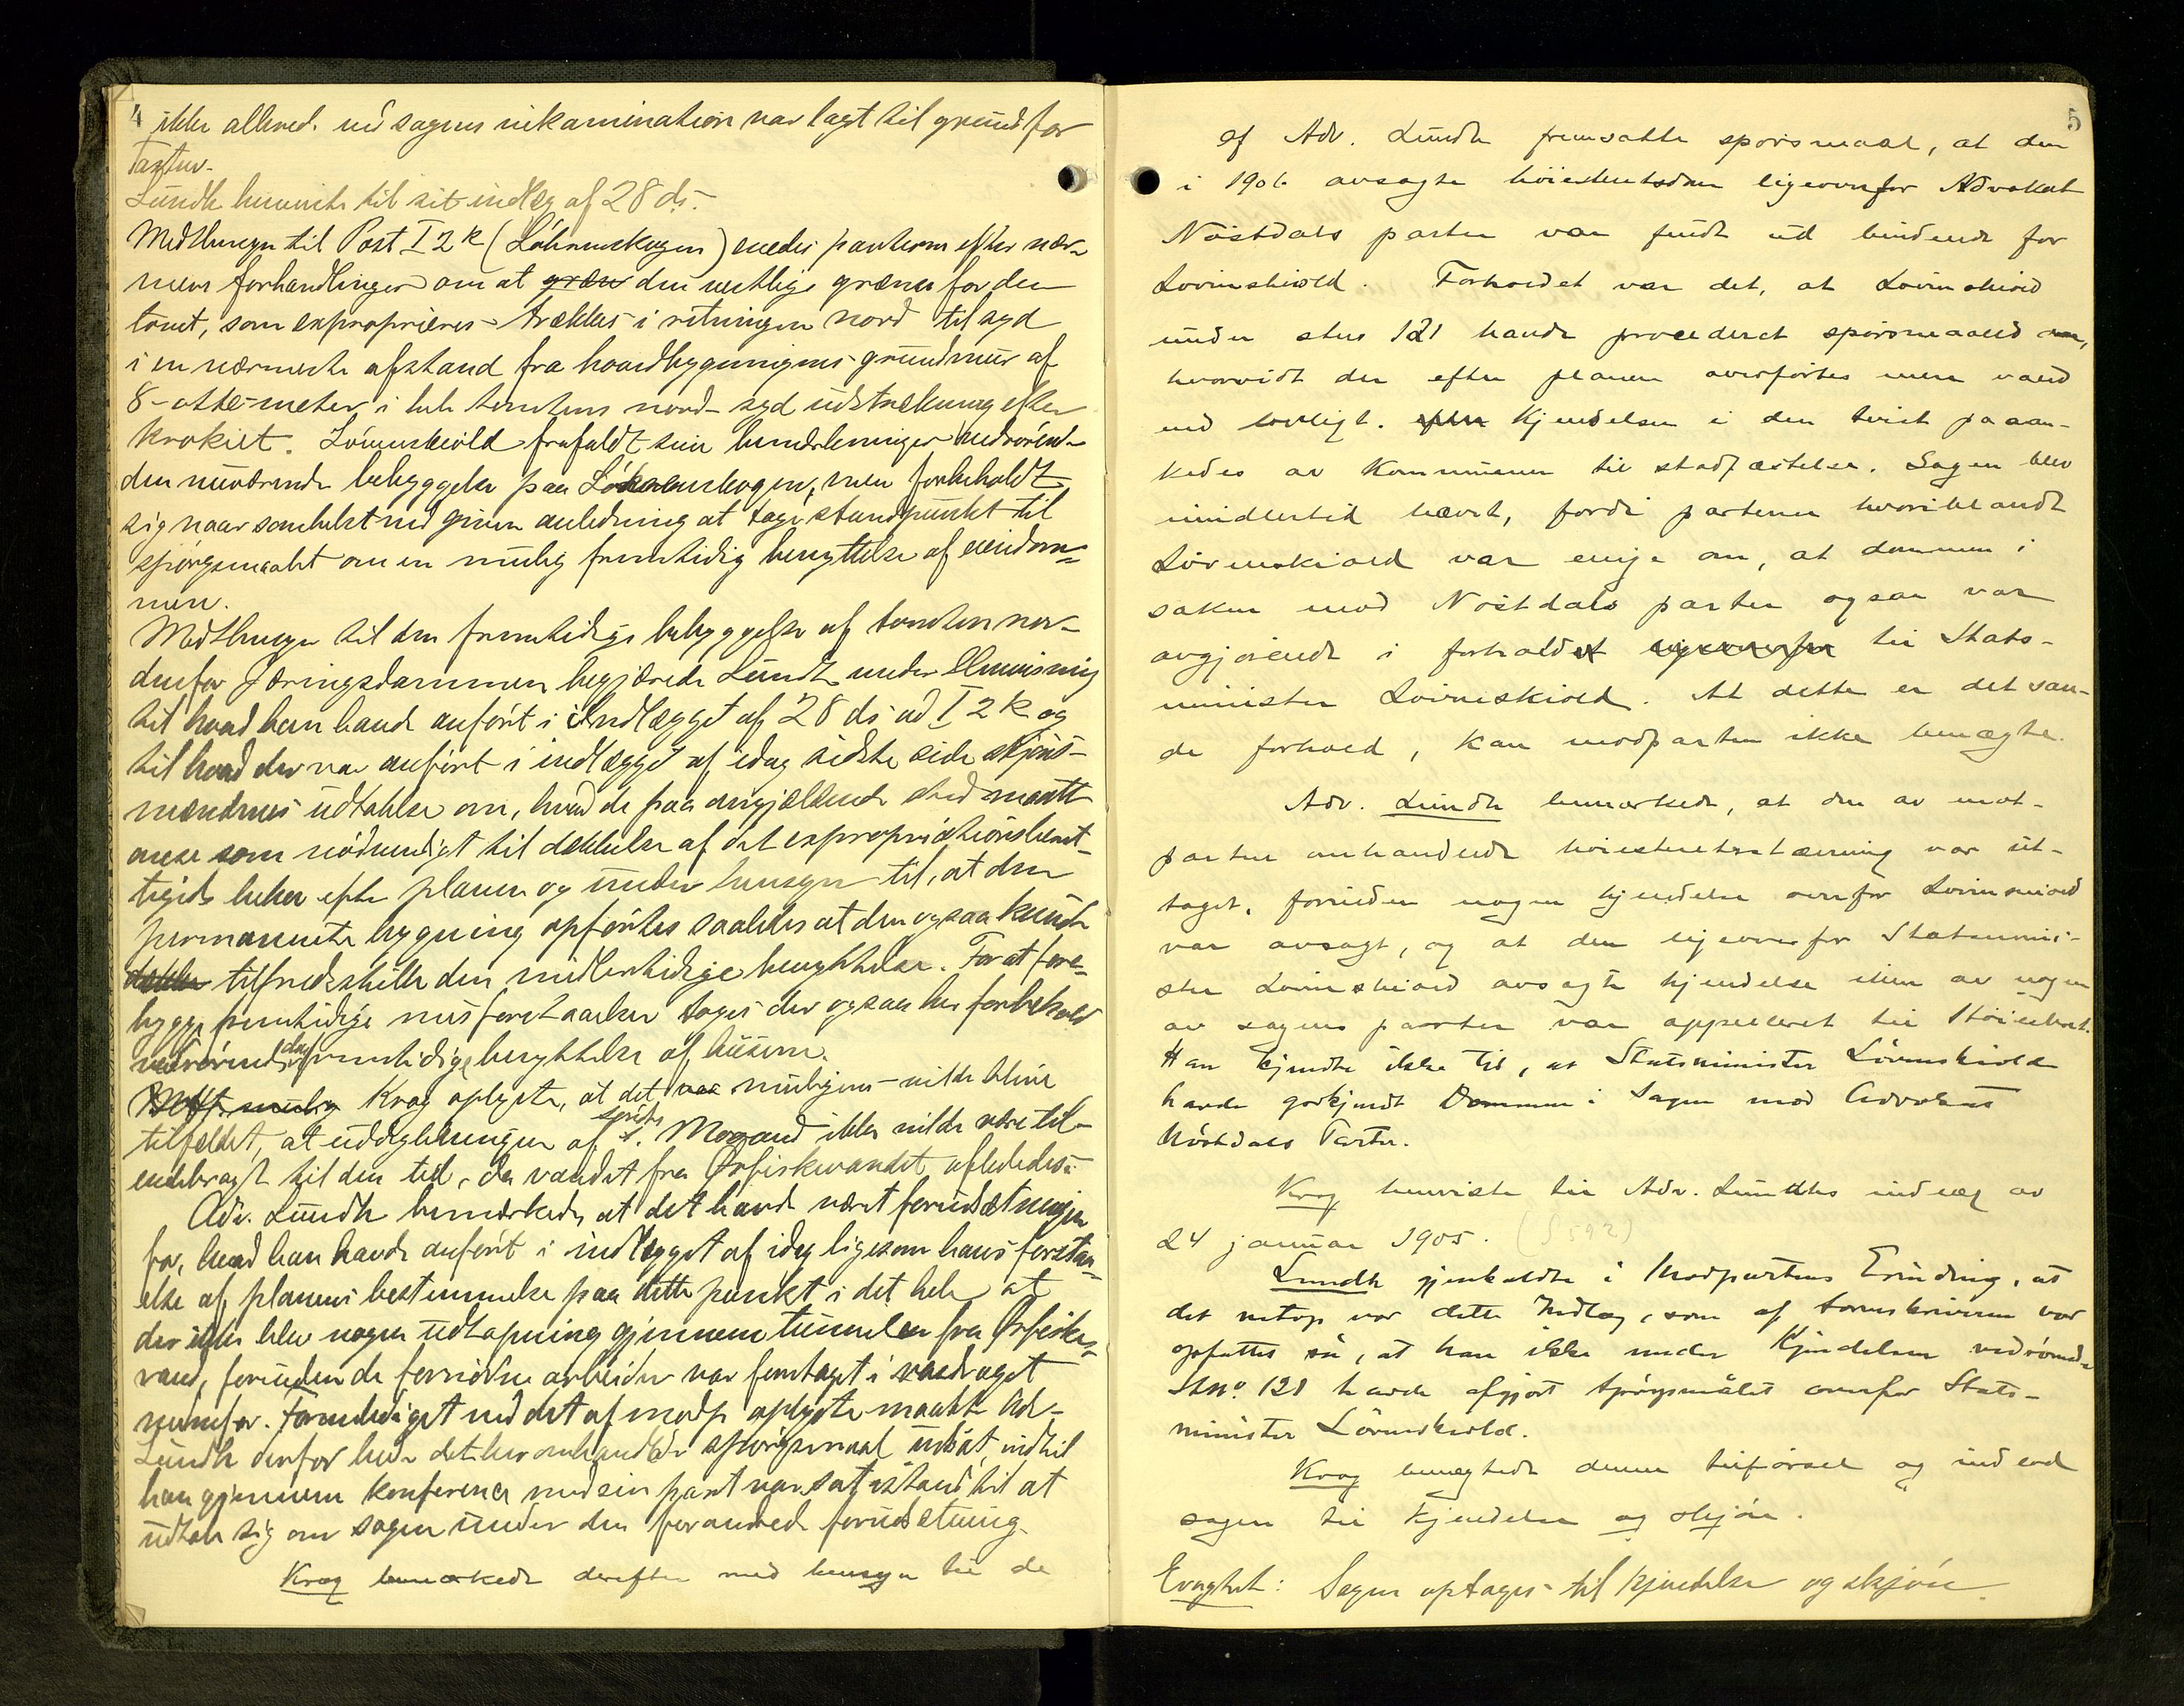 4 ikke allered. ved sagens inkamination var lagt til grund for
Taxten.
Lundh henviste til sit indlæg af 28 ds.-
Med hensyn til Post I 2 k (Løkenskogen) enedes parterne efter nær-
mere forhandlinger om at græns den vestlige grænse for den
tomt, som exproprieres - trækkes i retningen nord til syd
i en nærmeste afstand fra hovedbygningens grundmur af
8-otte-meter i hele tomtens nord-syd udstrækning efter
krokiet. Lövenskiold frafaldt sine bemærkninger vedrörende
den nuværende bebyggelse paa Løkenskogen, men forbeholdt
sig naar somhelst ved given anledning at tage standpunkt til
spörgsmaalet om en mulig fremtidig benyttelse af eiendom-
men.
Med hensyn til den fremtidige bebyggelse af tomten nor-
denfor Jæringsdammen begjærede Lundh under Henvisning
til hvad han havde anfört i Indlægget af 28 ds ad I 2 k og
til hvad der var anfört i indlægget af idag sidste side skjöns-
mændenes udtalelse om, hvad de paa angjældende sted maatte
anse som nödvendigt til dækkelse af det expropriationsberet-
tigede behov efter planen og under hensyn til, at den
permanente bygning opförtes saaledes at den ogsaa kunde
dekke tilfredsstille den midlertidige benyttelse. For at fore-
bygge fremtidige misforstaaelser toges der ogsaa her forbehold
vedrörende den fremtidige benyttelse af husene.
Krag oplyste, at det var muligens - vilde blive
tilfældet, at uddybningen af söndre Movand ikke vilde være til-
endebragt til den tid, da vandet fra Ørfiskevandet aflededes.
Adv. Lundh bemærkede, at det havde været forudsætningen
for, hvad han havde anfört i indlægget af idag ligesom hans forstaa-
else af planens bestemmelse paa dette punkt i det hele at
der ikke blev nogen udtapning gjennem tunnelen fra Ørfiske-
vand, forinden de fornödne arbeider var foretaget i vasdraget
nedenfor. Foranlediget ved det af modp. oplyste maatte Adv.
Lundh derfor lade det her omhandlede spörgsmaal udsat, indtil
han gjennem konference med sin part var sat istand til at
udtale sig om sagen under den forandrede forudsætning.
Krag bemærkede derefter med hensyn til de
5
af Adv. Lundh fremsatte spörsmaal, at den
i 1906 avsagte höiesteretsdom ligeoverfor Advokat
Nöstdals parter var fuldt ud bindende for
Lövenskiold. Forholdet var det, at Lövenskiold
under stus 121 havde procederet spörsmaalet om,
hvorvidt der efter planen overförtes mere vand
end lovligt. Kjendelsen i den tvist paaan-
kedes av Kommunen til stadfæstelse. Sagen blev
imidlertid hævet, fordi parterne hvoriblandt
Lövenskiold var enige om, at dommen i
saken mod Nöstdals parter ogsaa var
avgjörende i forholdet ligeoverfor til Stats-
minister Lövenskiold. At dette er det san-
de forhold, kan modparten ikke benægte.
Adv. Lundh bemærkede, at den av mot-
parten omhandlede höiesteretsstævning var ut-
taget, forinden nogen kjendelse overfor Lövenskiold
var avsagt, og at den ligeoverfor Statsmini-
ster Lövenskiold avsagte kjendelse ikke av nogen
av sagens parter var appelleret til Höiesteret.
Han kjendte ikke til, at Statsminister Lövenskiold
havde godkjendt Dommen i Sagen mod Advokat
Nöstdals Parter.
Krag henviste til Adv. Lundhs indlæg av
24 januar 1905. (S 592)
Lundh gjenkaldte i Modpartens Erindring, at
det netop var dette Indlæg, som af sorenskriveren var
opfattet så, at han ikke under Kjendelsen vedrörende
Stno 121 havde afgjort Spörgsmålet overfor Stats-
minister Lövenskiold.
Krag benægtede denne tilförsel og indlod
sagen til Kjendelse og skjön.
Eragtet: Sagen optages til kjendelse og skjön